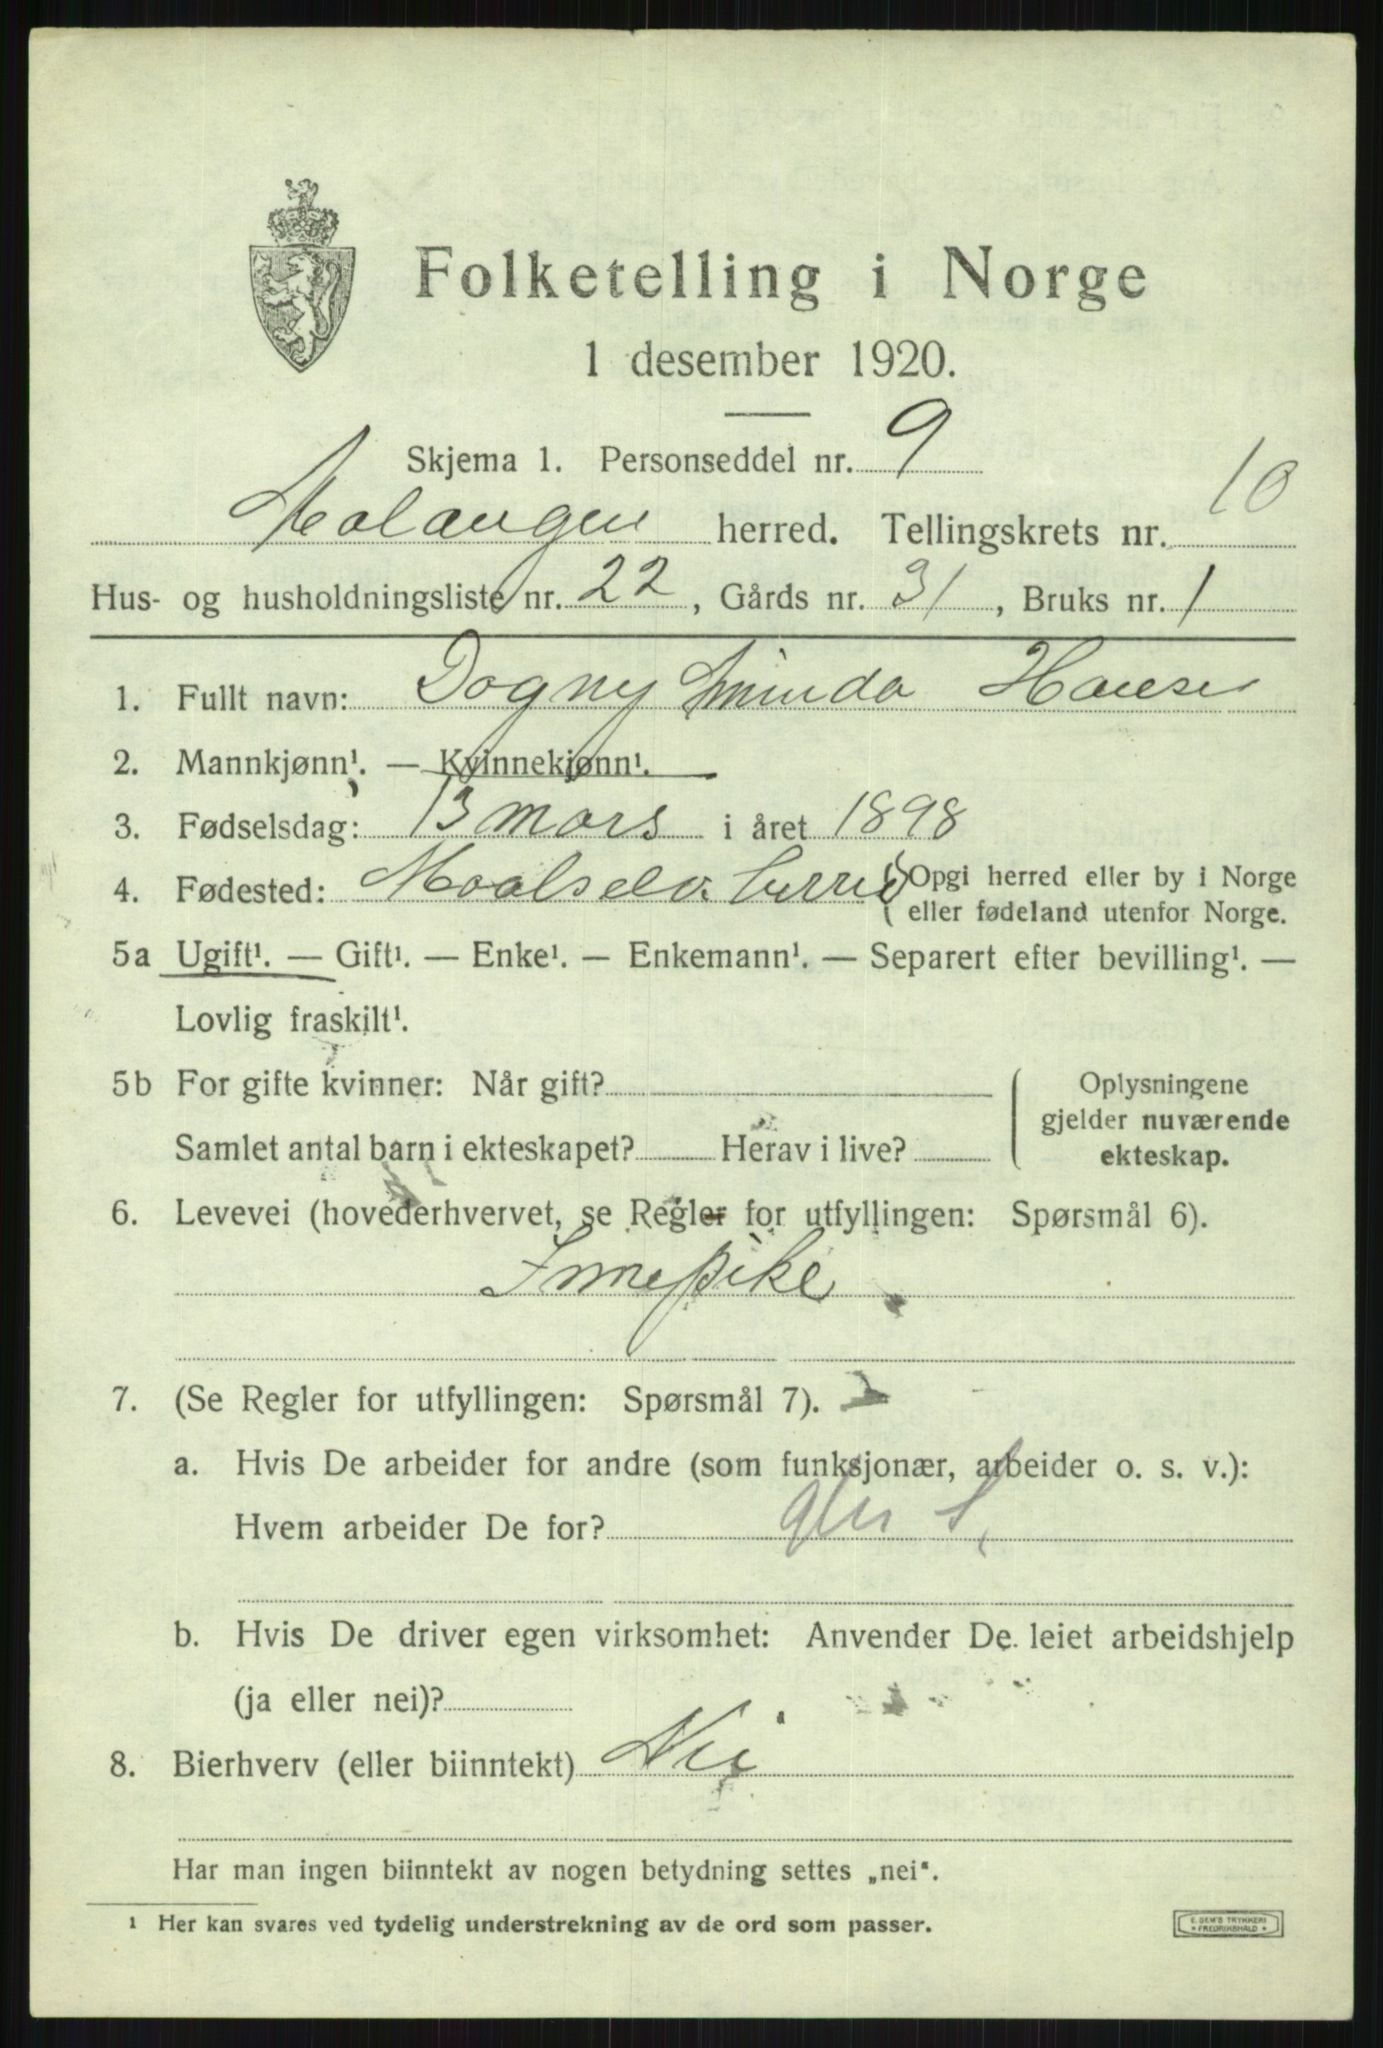 Folketelling i Norge
1 desember 1920.
Skjema 1. Personseddel nr. 9
Malangen herred. Tellingskrets nr. 10
Hus- og husholdningsliste nr. 22, Gårds nr. 31, Bruks nr. 1
1. Fullt navn: Dagny Hansen
2. Mannkjønn¹. — Kvinnekjønn¹.
3. Fødselsdag: 13 mars i året 1898
4. Fødested: Maalselv herred (Opgi herred eller by i Norge
eller fødeland utenfor Norge.
5a Ugift¹. — Gift¹. — Enke¹. — Enkemann¹. — Separert efter bevilling¹. —
Lovlig fraskilt¹.
5b For gifte kvinner: Når gift? Oplysningene
gjelder nuværende
Samlet antal barn i ekteskapet? Herav i live? ekteskap.
6. Levevei (hovederhvervet, se Regler for utfyllingen: Spørsmål 6).
Innepike
7. (Se Regler for utfyllingen: Spørsmål 7).
a. Hvis De arbeider for andre (som funksjonær, arbeider o. s. v.):
Hvem arbeider De for?
b. Hvis De driver egen virksomhet: Anvender De leiet arbeidshjelp
(ja eller nei)?
8. Bierhverv (eller biinntekt) Nei
Har man ingen biinntekt av nogen betydning settes „nei“.
¹ Her kan svares ved tydelig understrekning av de ord som passer.
E. SEM'S TRYKKERI
* FREDRIKSHALD *